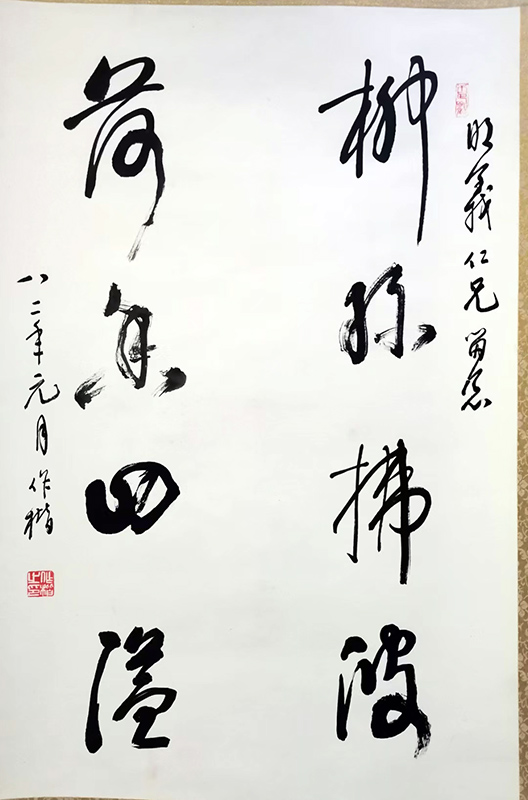 明義仁兄留念
柳絲拂波
荷香四溢
八二年元月作楷